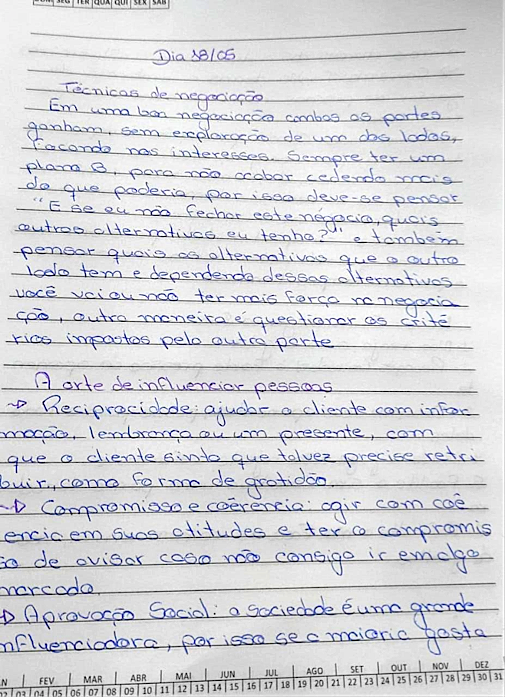 SEG TER QUA QUI SEX SAB
Dia 18/05
Técnicas de negociação
Em uma boa negociação ambos as partes
ganham, sem exploração de um dos lados,
focando nos interesses. Sempre ter um
plano B, para não acabar cedendo mais
do que poderia, por isso deve-se pensar
"E se eu não fechar este négocio, quais
outras alternativas eu tenho?" e também
pensar quais as alternativas que o outro
lado tem e dependendo dessas alternativas
você vai ou não ter mais força na negocia
ção, outra maneira é questionar os crité
rios impostos pelo outra parte.
A arte de influenciar pessoas
→ Reciprocidade: ajudar o cliente com infor
mação, lembrança ou um presente, com
que o cliente sinta que talvez precise retri
buir, como forma de gratidão.
→ Compromisso e coêrencia: agir com coê
encia em suas atitudes e ter o compromis
so de avisar caso não consiga ir em algo
marcado.
→ Aprovação Social: a sociedade é uma grande
nfluenciadora, por isso se a maioria gosta
N FEV MAR ABR MAI JUN JUL AGO SET OUT NOV DEZ
02 03 04 05 06 07 08 09 10 11 12 13 14 15 16 17 18 19 20 21 22 23 24 25 26 27 28 29 30 31